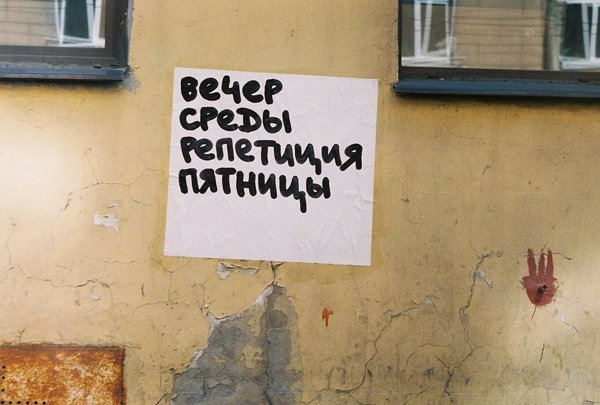 вечер
среды
репетиция
пятницы